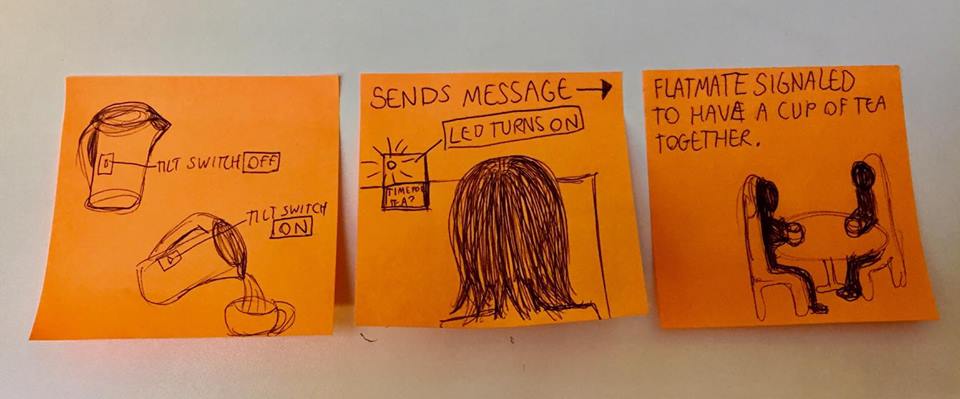 TILT SWITCH OFF
TILT SWITCH
ON
SENDS MESSAGE
LED TURNS ON
TIME FOR
TEA?
FLATMATE SIGNALED
TO HAVE A CUP OF TEA
TOGETHER.